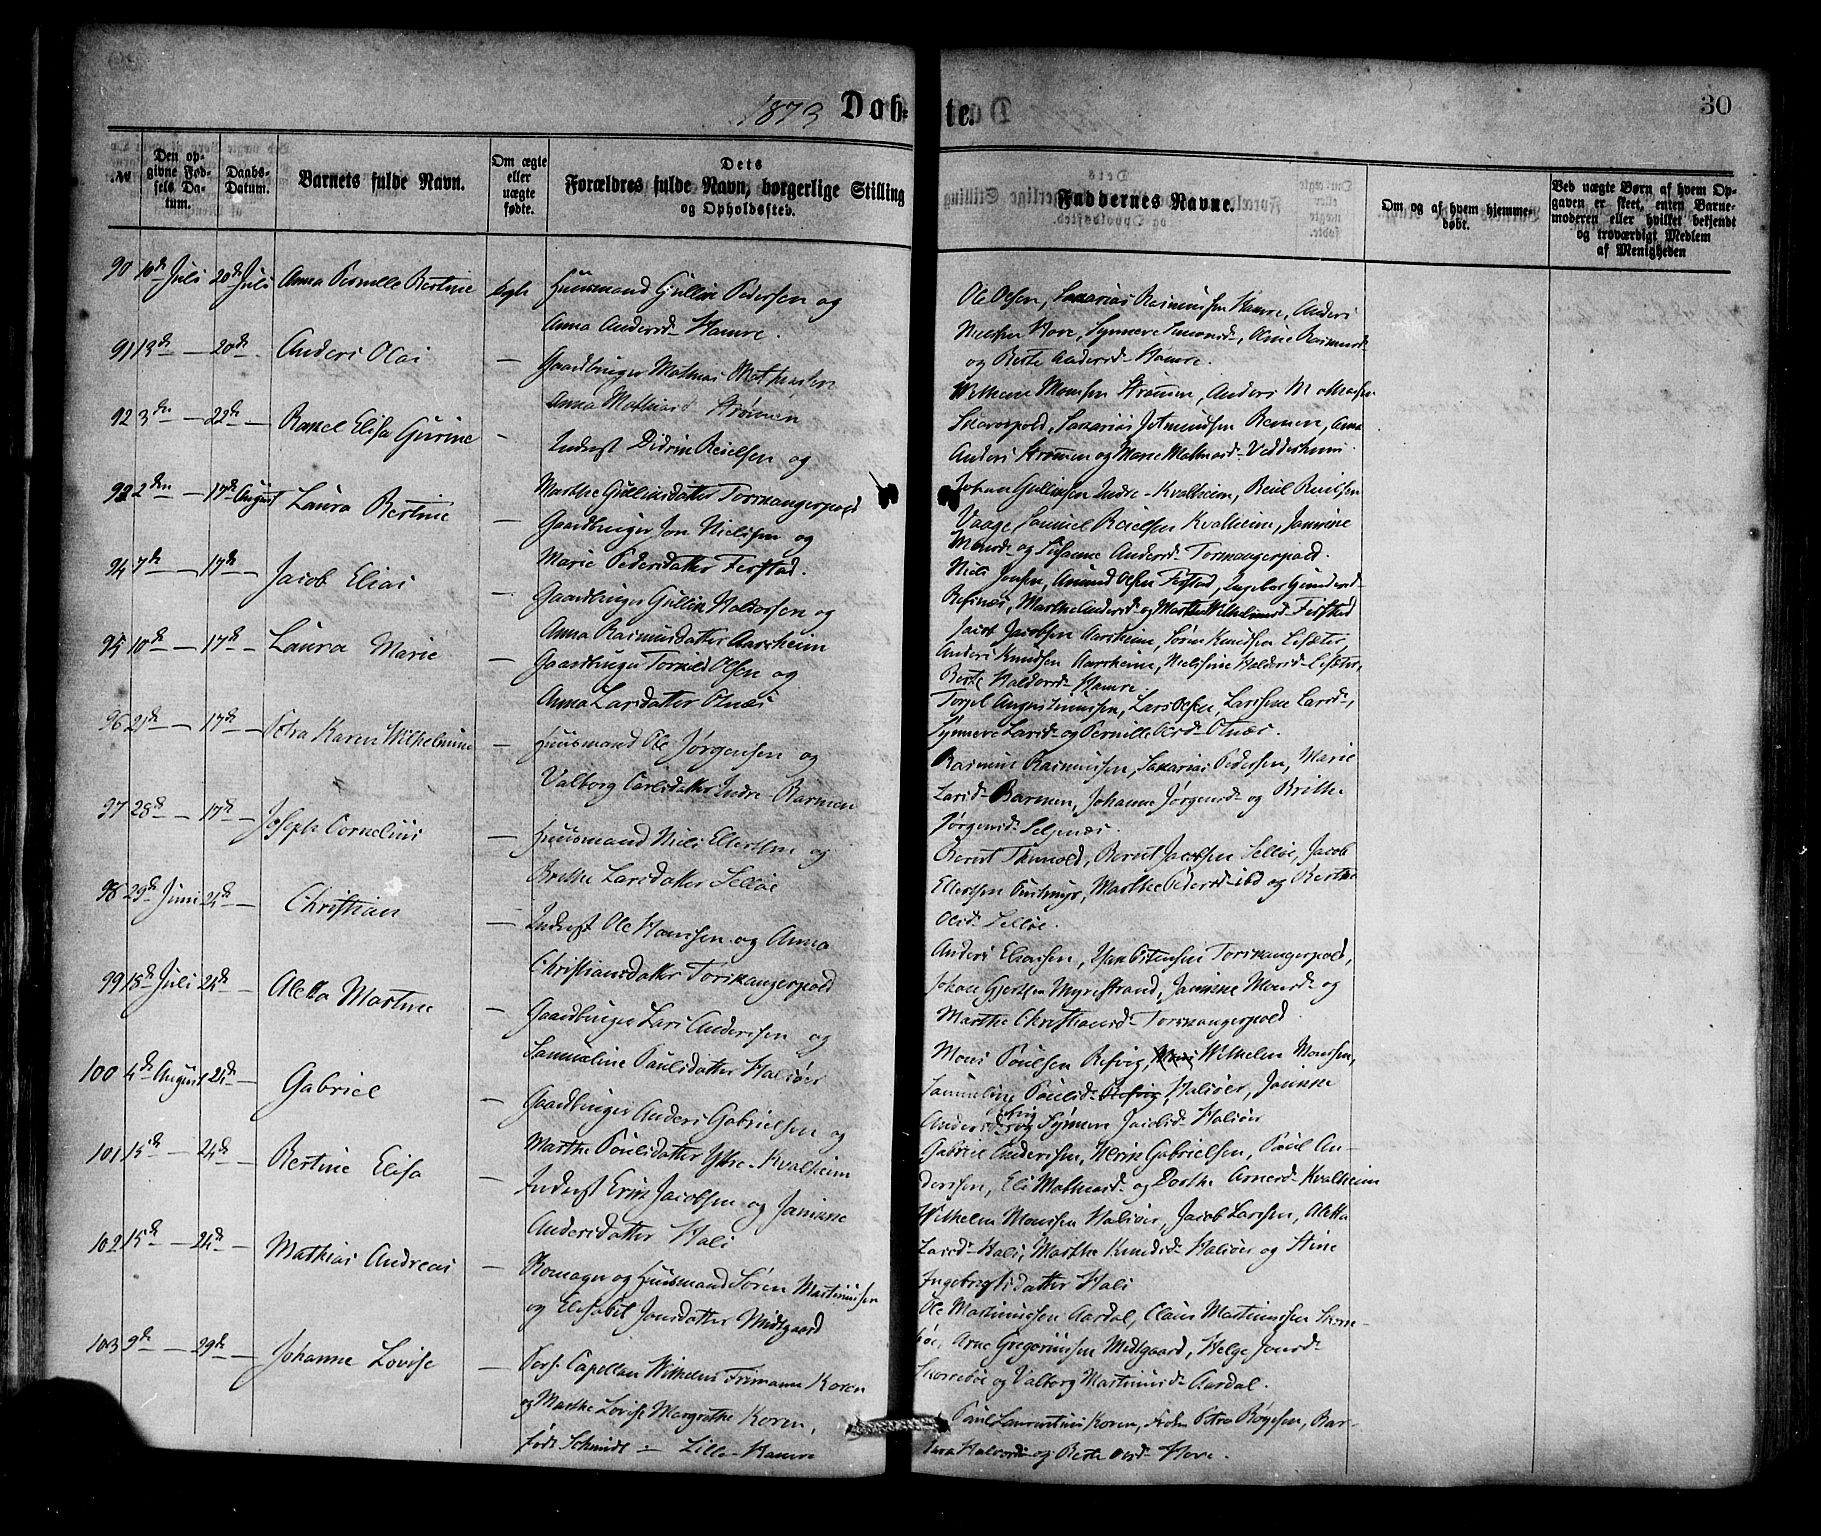 1873 Daabte. 30
№
Den opgivne Fødsels Datum.
Daabs-Datum.
Barnets fulde Navn.
Om ægte eller uægte fødte.
Dets Forældres fulde Navn, borgerlige Stilling og Opholdssted.
Faddernes Navne.
Om og af hvem hjemmedøbt.
Ved uægte Børn af hvem Opgaven er skeet, enten Barnemoderen eller hvilket bekjendt og troværdigt Medlem af Menigheden
90 10de Juli 20de Juli Anna Pernille Bertine Huusmand Gullik Pedersen og
Anna Andersd. Hamre.
Ole Olsen, Sakarias Rasmussen Hamre, Anders
Nielsen Hove, Synneve Simonsd., Rasmusd.
og Berte Andersd. Hamre.
91 13de — 20de — Anders Olai — Gaardbruger Mathias Mathiassen
Anna Mathiasd. Strømmen
Wilhelm Monsen Strømmen, Anders Mathiassen
Sakarias Remen, Anna
Anders Strømmen og Marie Mathiasd. Vedderheim.
92 3die — 22de — Rakel Elisa Gurine — Inderst Didrik Reielsen og
Marthe Gulliksdatter Torskangerpold
Johan Gulliksen Indre-Kvalheim, Reiel Reielsen
Vaage, Samuel Reielsen Kvalheim, Jannine
Monsd. og Susanne Andersd. Torskangerpold.
93 2den — 17de August Laura Bertine — Gaardbruger Jon Nielsen og
Marie Pedersdatter Ferstad.
Niels Jonsen, Amund Olsen Ferstad, Ingebor Gunders.
Refsnes, Marthe Andersd. og Marthe Wilhelmsd. Ferstad
94 7de — 17de — Jacob Elias — Gaardbruger Gullik Haldorsen og
Anna Rasmusdatter Aarsheim
Jacob Jacobsen Aarsheim, Søren Knudsen Lesæter,
Anders Knudsen Aarsheim, Nielsine Haldorsd. Lesæter,
Berte Haldorsd. Hamre.
95 10de — 17de — Laura Marie — Gaardbruger Torkild Olsen og
Anna Larsdatter Otnæs
Torgel Augustinussen, Lars Olsen, Larsine Larsd.,
Synneve Larsd. og Pernille Otnæs.
96 21de — 17de — Petra Karen Wilhelmine — Huusmand Ole Jørgensen og
Valborg Carlsdatter Indre-Barmen
Rasmus Rasmussen, Sakarias Pedersen, Marie
Larsd. Barmen, Johanne Jørgensd. og Brithe
Jørgensd. Seljenæs.
97 28de — 17de — Joseph Cornelius — Huusmand Niels Ellertsen og
Brithe Larsdatter Selløe
Bernt Bernt Jacobsen Selløe, Jacob
Ellertsen Marthe Pedersd. ibd og Berthe
Olsd. Selløe.
98 29de Juni 24de — Christian — Inderst Ole Hansen og Anna
Christiansdatter Torskangerpold
Anders Eliassen, Torskangerpold,
Johan Gjertsen Myrestrand, Jannine Monsd. og
Marthe Christiansd. Torskangerpold.
99 18de Juli 24de — Aletta Martine — Gaardbruger Lars Andersen og
Samueline Paulsdatter Halsør
Mons Poulsen Refvig, Wilhelm Monsen,
Samueline Poulsd. Refvig, Halsøer, Janikke
Andersd. Refvig og Synneve Halsør
100 4de August 24de — Gabriel — Gaardbruger Anders Gabrielsen og
Marthe Poulsdatter Ytre-Kvalheim
Gabriel Andersen, Henrik Gabrielsen, Poul An-
dersen, Eli Mathiasd. og Dorthe Arnesd. Kvalheim
101 15de — 24de — Bertine Elisa — Inderst Erik Jacobsen og Janikke
Andersdatter Hals
Wilhelm Monsen Halsør, Jacob Larsen, Aletta
Larsd. Hals, Marthe Knudsd. Halsør og Stine
Ingebregtsdatter Hals
102 15de — 24de — Mathias Andreas — Skomager og Huusmand Søren Martinussen
og Elisabet Jonsdatter Midtgaard
Ole Martinussen Aardal, Claus Martinussen Skorre-
bøe, Arne Gregoriussen Midtgaard, Helge Jonsd.
Skorrebøe og Valborg Martinusd. Aardal.
103 9de — 29de — Johanne Lovise — Pers. Capellan Wilhelm Frimann Koren
og Marthe Lovise Margrethe Koren,
født Schmidt — Lille-Hamre
Poul Laurentius Koren, Petra Børgesen, Bar-
bara Halvorsd. og Berte Hove.